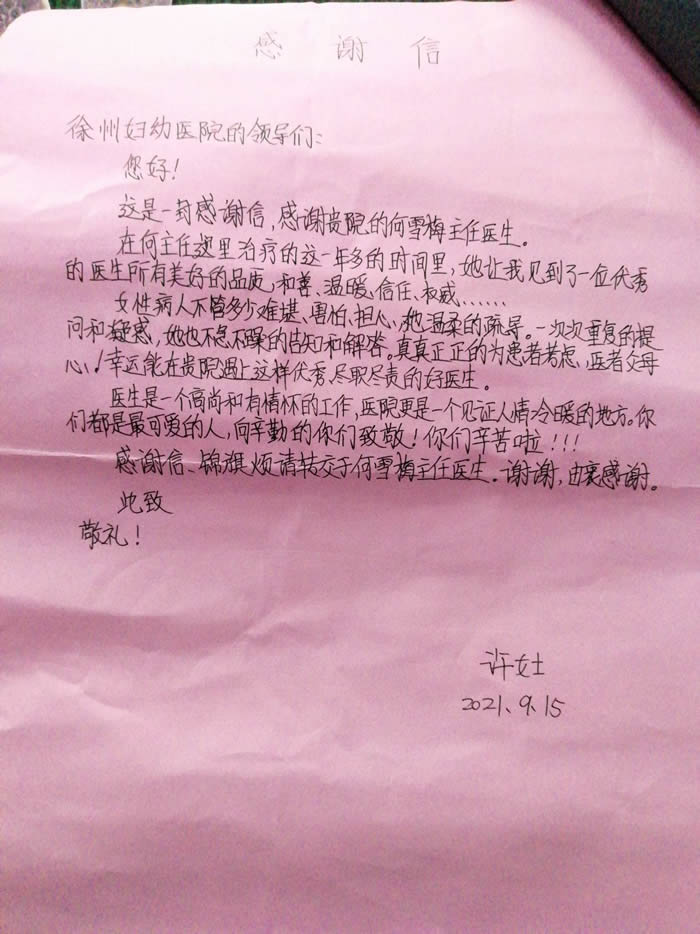 感谢信
徐州妇幼医院的领导们:
您好!
这是一封感谢信,感谢贵院的何雪梅主任医生。
在何主任这里治疗的这一年多的时间里,她让我见到了一位优秀
的医生所有美好的品质,和善、温暖、信任、权威......
女性病人不管多少难堪、害怕、担心,她温柔的疏导。一次次重复的提
问和疑惑,她也不急不躁的告知和解答。真真正正的为患者考虑,医者父母
心!幸运能在贵院遇上这样优秀、尽职尽责的好医生。
医生是一个高尚和有情怀的工作,医院更是一个见证人情冷暖的地方。你
们都是最可爱的人,向辛勤的你们致敬!你们辛苦啦!!!
感谢信、锦旗烦请转交于何雪梅主任医生。谢谢,由衷感谢。
此致
敬礼!
许女士
2021.9.15